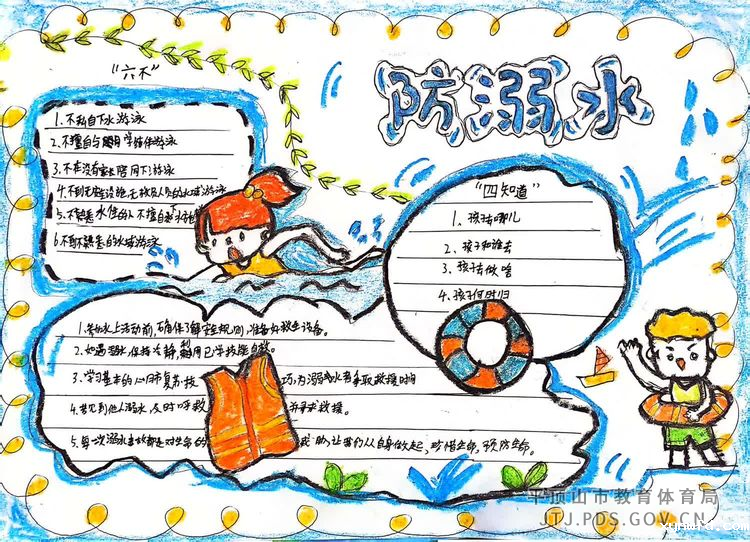 防溺水
"六不"
1.不私自下水游泳
2.不擅自与同学结伴游泳
3.不在没有家长陪同下游泳
4.不到无安全设施,无救员人员的水域游泳
5.不熟悉水性的人不擅自下水
6.不到不熟悉的水域游泳
"四知道"
1、孩子去哪儿
2、孩子和谁去
3、孩子去做啥
4、孩子何时归
1.参加水上活动前,确保了解安全规则,准备好救生设备。
2.如遇溺水,保持冷静,利用已学技能自救。
3.学习基本的心肺复苏技巧,为溺水者争取救援时间
4.若见到他人溺水,及时呼救并寻求救援。
5.每一次溺水事故都是对生命的 ,让我们从自身做起,珍惜生命,预防
平顶山市教育体育局
JTJ.PDS.GOV.CN